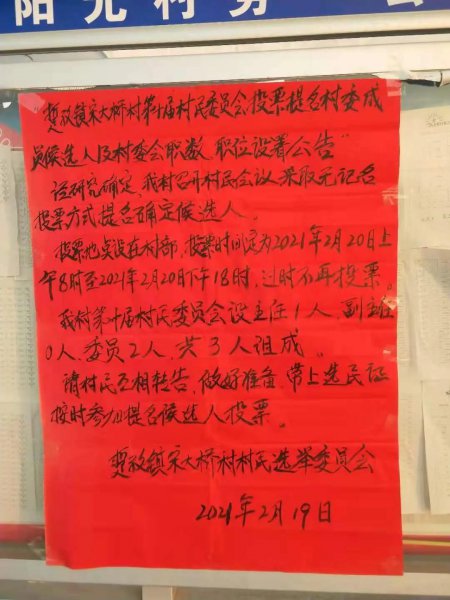 阳光村务 公
"镇宋大桥村第十届村民委员会投票提名村委成
员候选人及村委会职数、职位设置公告"
经研究确定 我村召开村民会议 采取无记名
投票方式提名确定候选人。
投票地点设在村部，投票时间定为2021年2月20日上
午8时至2021年2月20日下午18时，过时不再投票。
我村第十届村民委员会设主任1人，副主任
0人，委员2人，共3人组成。
请村民互相转告，做好准备，带上选民证
按时参加提名候选人投票。
镇宋大桥村村民选举委员会
2021年2月19日